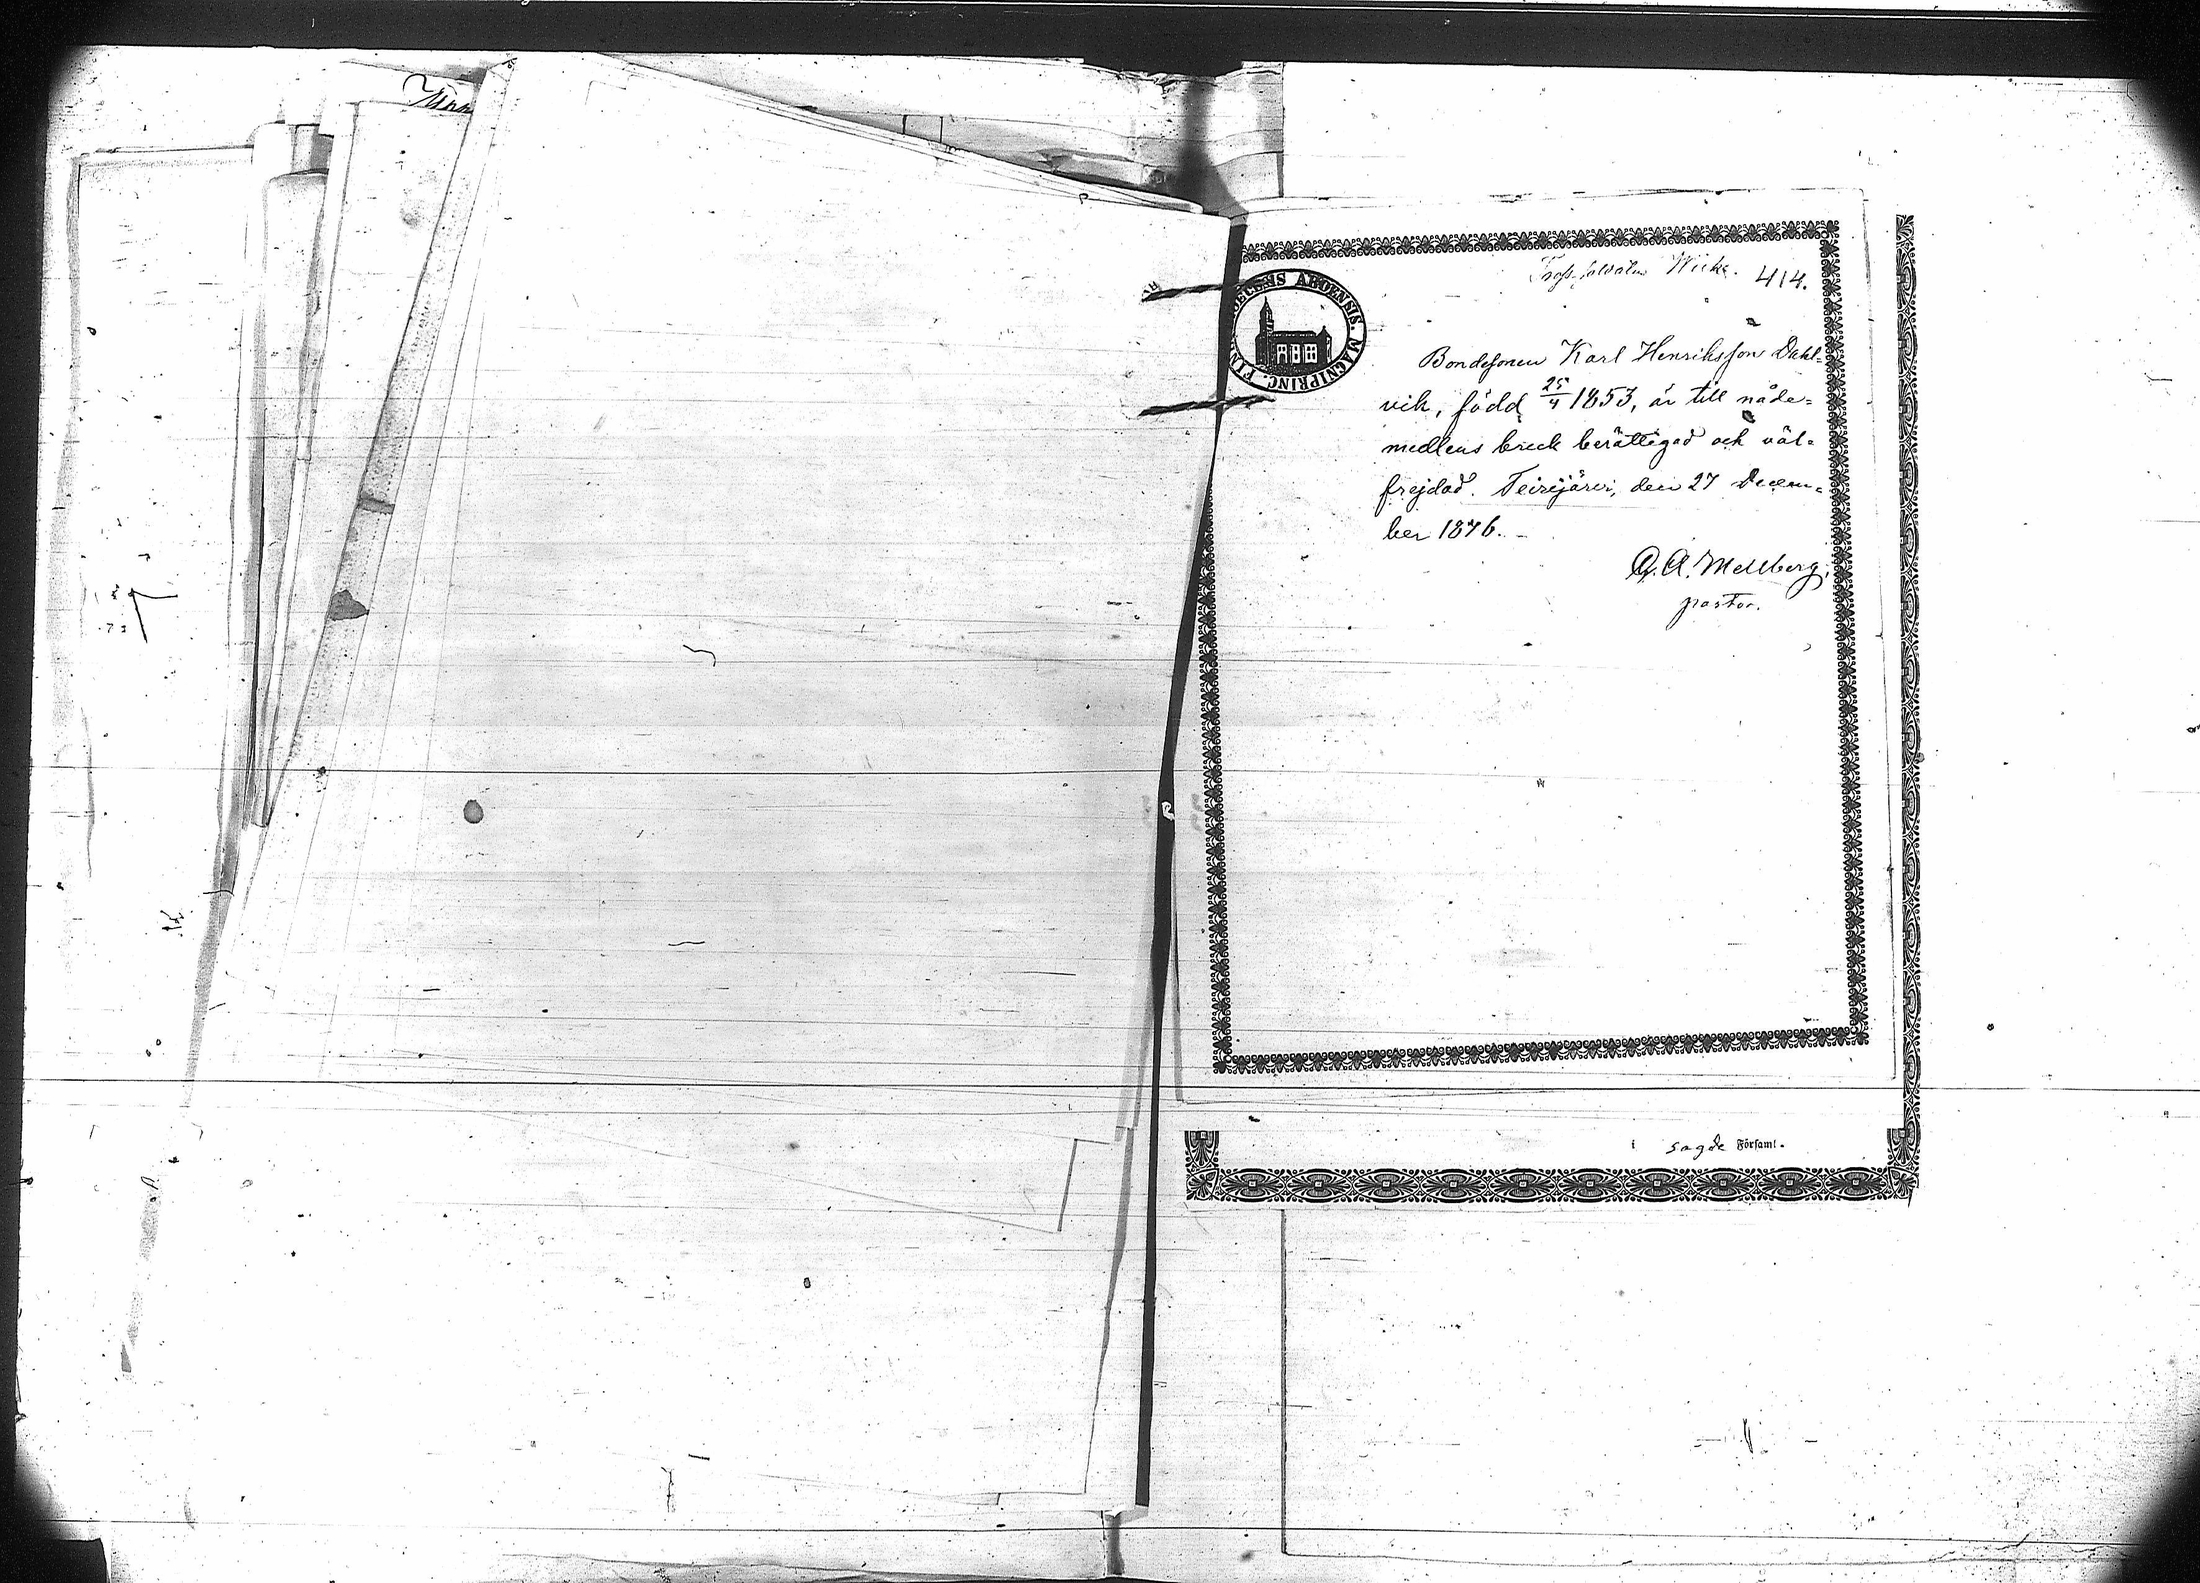 414.
DIOECENS ABOENSIS. MAGNIPRINC. FINL
Bondesonen Karl Henriksson Dahl=
vik, född 25/4 1853, är till nåde=
medlens bruk berättigad och väl=
frejdad. Teirijärvi, den 27 Decem=
ber 1876.
G. A. Mellberg,
pastor.
i sagde Församl.